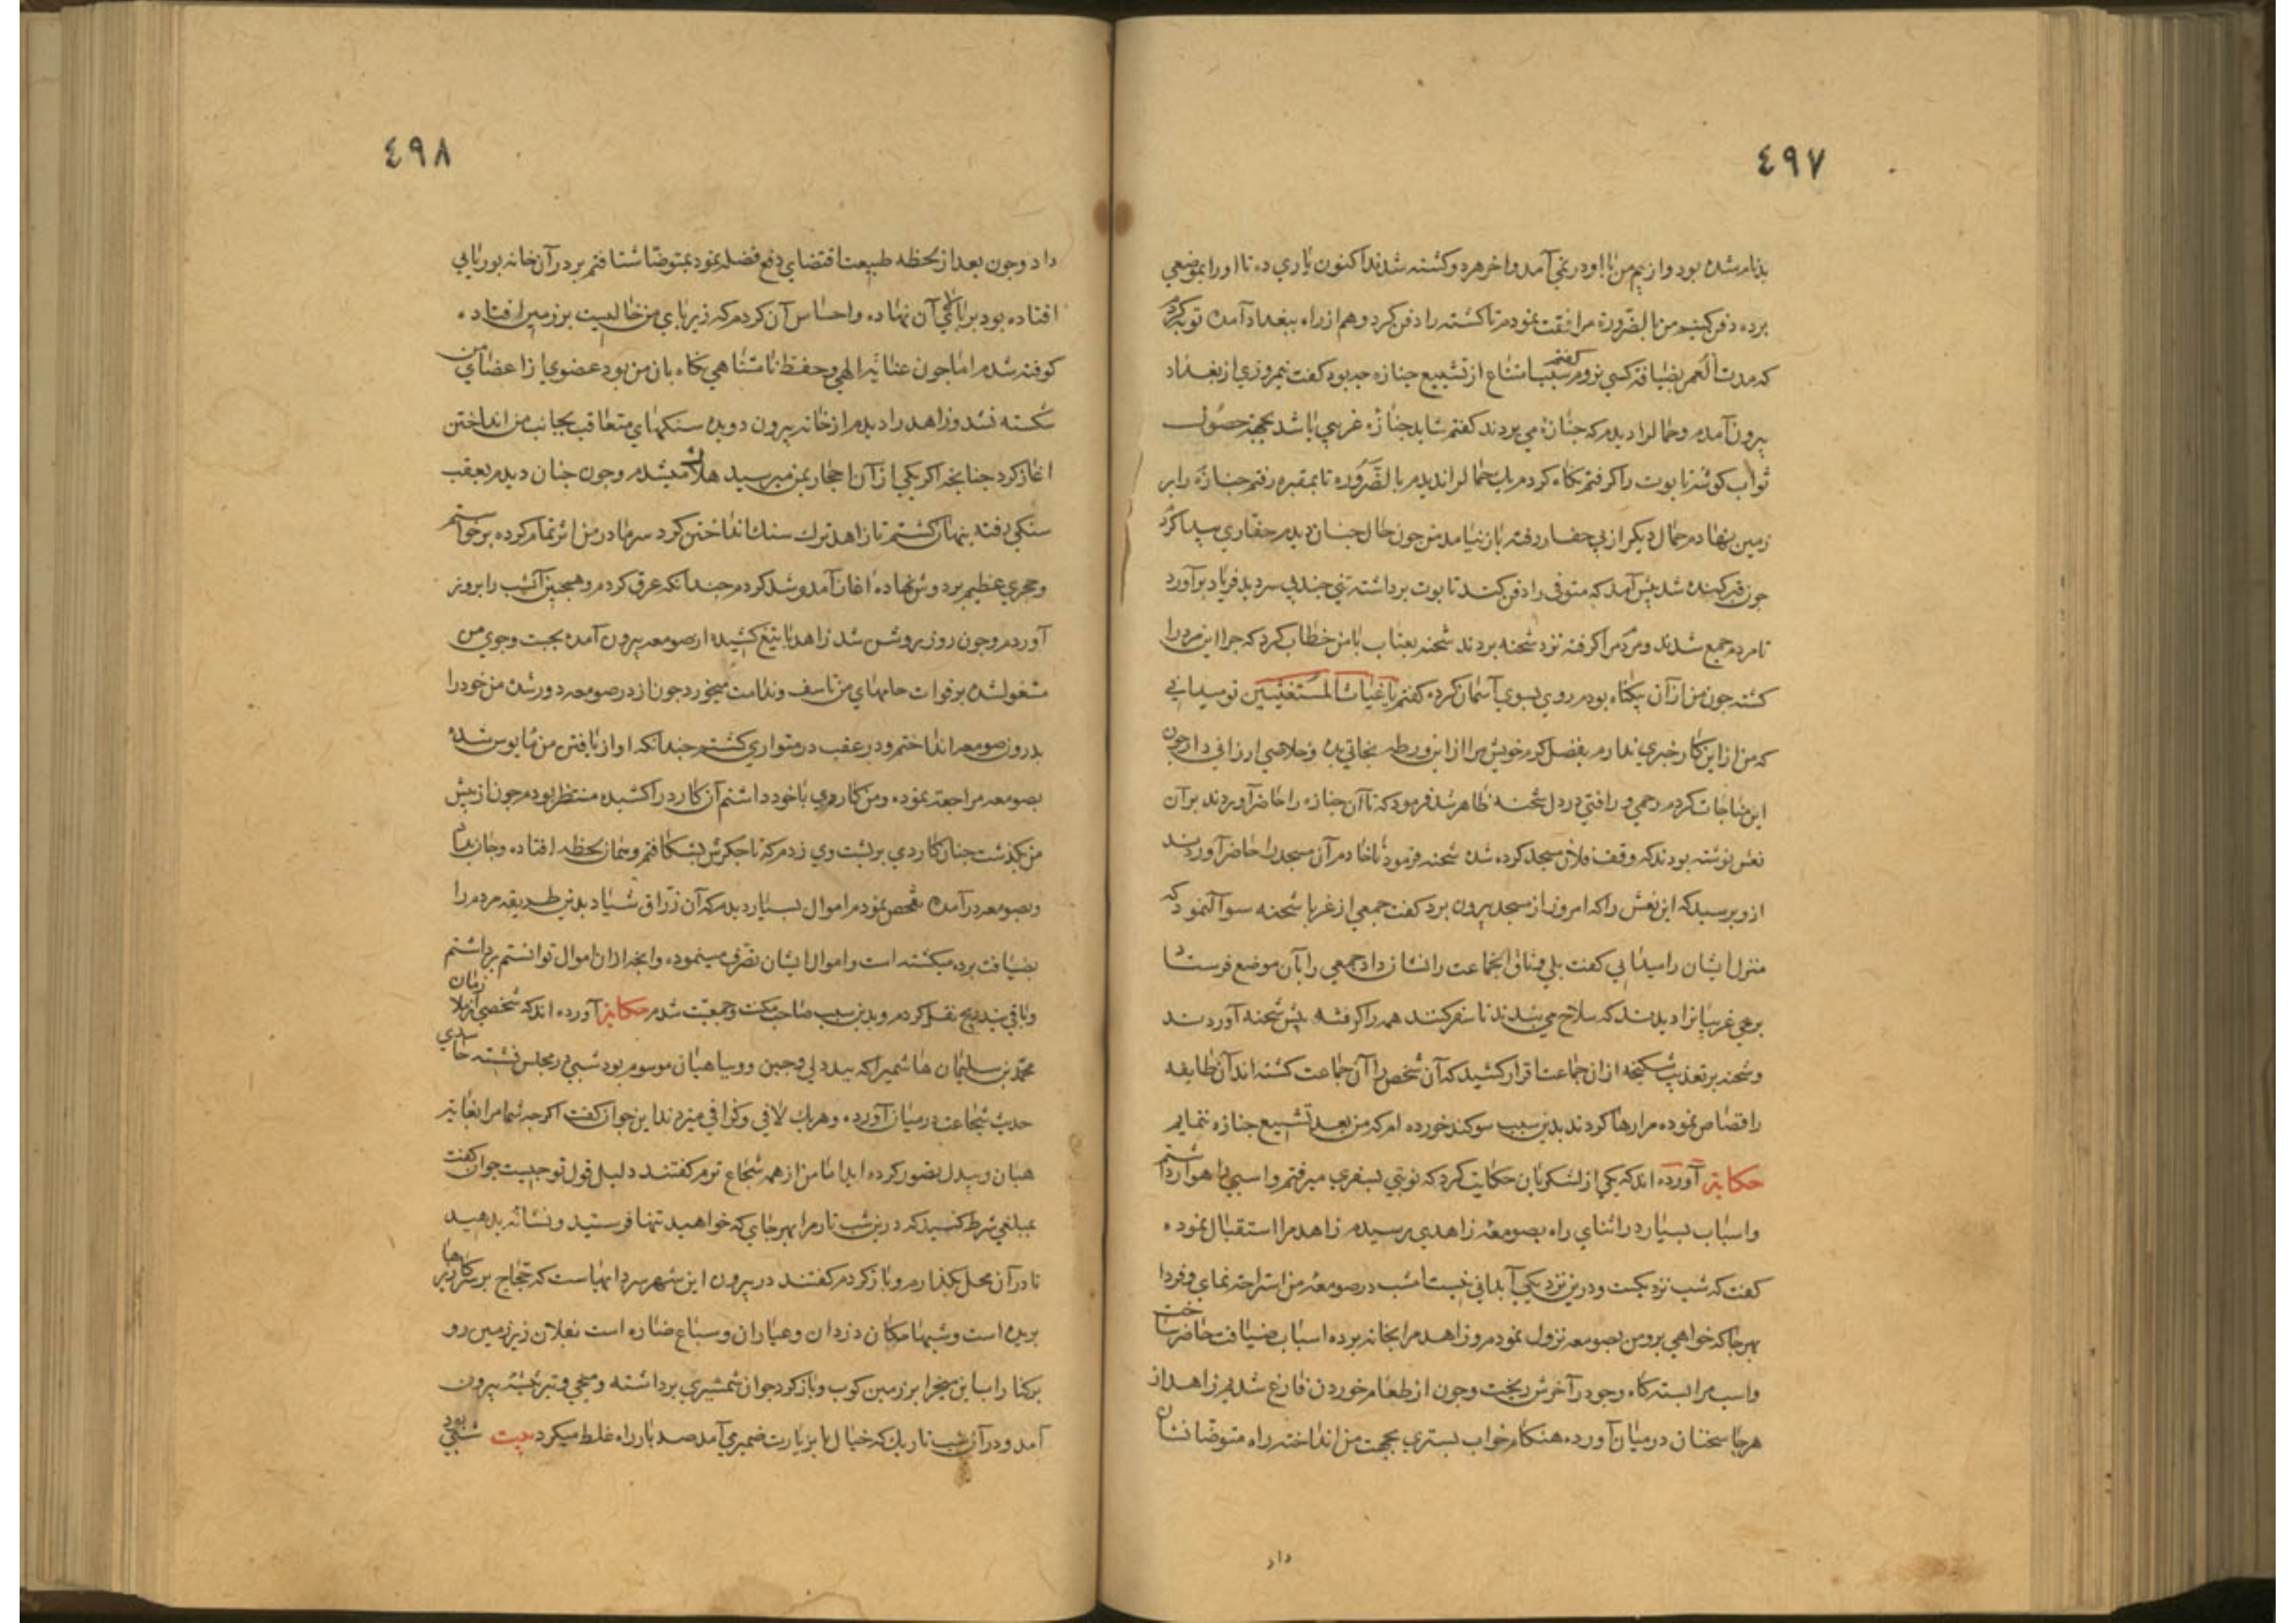 ٤٩٧
بذنام شده بود و از بیم من با او در نمی آمد و اخر هر دو کشته شدند اکنون یاری ده تا او را بموضعی
برده دفن کنیم من بالضرورة مرافقت نمودم تا کشته را دفن کرد و هم از راه ببغداد آمده توبه کردم
که مدت العمر بضیافة کسی نروم گفتم سبب امتناع از تشییع جنازه چه بود گفت نیم روزی از بغداد
بیرون آمدم و حمالرا دیدم که جنازهٔ می بردند گفتم شاید جنازه غریبی باشد بجهة حصول
ثواب کوشهٔ تابوت را گرفتم نگاه کردم یک حمالرا ندیدم بالضروره تا بمقبره رفتم جنازه را بر
زمین نهادم حمال دیگر از پی حفار رفته باز نیامد من چون حال چنان دیدم حفاری پیدا کردم
چون قبر کنده شد پیش آمد که متوفی را دفن کند تابوت برداشته تنی چند بی سر دید فریاد برآورد
تا مردم جمع شدند و مردم مرا گرفته نزد شحنه بردند شحنه بعتاب با من خطاب کرد که چرا این مرد را
کشتهٔ چون من از آن بیکناه بودم روی بسوی آسمان کرده گفتم یا غیاث المستغیثین تو میدانی
که من از این کار خبری ندارم بفضل و کرم خویش مرا از این ورطه نجاتی ده و خلاصی ارزانی دار چون
این مناجات کردم رحمی و رافتی در دل شحنه ظاهر شد فرمود که تا آن جنازه را حاضر آوردند بر آن
نعش نوشته بودند که وقف فلان مسجد کرده شده شحنه فرمود تا خادم آن مسجد را حاضر آوردند
ازو پرسید که این نعش را که امروز از مسجد بیرون برد گفت جمعی از غربا شحنه سوال نمود که
منزل ایشان را میدانی گفت بلی وثاق انجماعت را نشان داد جمعی را بآن موضع فرستاد
برخی غریبانرا دیدند که سلاح می بندند تا سفر کنند همه را گرفته پیش شحنه آوردند
و شحنه بر تعذیب شکنجه از ان جماعت اقرار کشید که آن شخص را آن جماعت کشته اند آن طایفه
را قصاص نموده مرا رها کردند بدین سبب سوکند خورده ام که من بعد تشییع جنازه ننمایم
حکایة آورده اند که یکی از لشکریان حکایت کرد که نوبتی بسفری میرفتم و اسبی راهوار داشتم
و اسباب بسیار در اثنای راه بصومعهٔ زاهدی برسیدم زاهد مرا استقبال نموده
گفت که شب نزدیکست و درین نزدیکی آبدانی نیست امشب در صومعهٔ من استراحة نمای و فردا
بهر جا که خواهی برو من بصومعه نزول نمودم و زاهد مرا بخانه برده اسباب ضیافت حاضر ساخت
و اسب مرا بسته کاه و جو در آخرش ریخت و چون از طعام خوردن فارغ شدیم زاهد از
هر جا سخنان در میان آورده هنگام خواب بستری بجهت من انداخته راه متوضا نشان
داد
٤٩٨
داد و چون بعد از لحظه طبیعت اقتضای دفع فضله نمود بمتوضا شتافتم بر در آن خانه بوریایی
افتاده بود پا بر بالای آن نهاده و احساس آن کردم که زیر پای من خالیست بر زمین افتاده
کوفته شدم اما چون عنایة الهی و حفظ نامتناهی نگاه بان من بود عضوی از اعضای من
شکسته نشد و زاهد را دیدم از خانه بیرون دویده سنگهای متعاقب بجانب من انداختن
اغاز کرد چنانچه اکر یکی از آن احجار بمن میرسید هلاک میشدم و چون چنان دیدم بعقب
سنکی رفته پنهان کشتم تا زاهد ترک سنک انداختن کرد سرما در من اثر تمام کرده برخواستم
و حجری عظیم بر دوش نهاده اغاز آمد و شد کردم چندانکه عرق کردم و همچنین آنشب را بروز
آوردم و چون روز روشن شد زاهد با تیغ کشیده از صومعه بیرون آمده بجست وجوی من
مشغول شده بر فوات جامهای من تاسف و ندامت میخورد چون از در صومعه دور شد من خود را
بدرون صومعه انداختم و در عقب در متواری کشتم چندانکه او از یافتن من مایوس شده
بصومعه مراجعة نموده و من کاردی با خود داشتم آن کارد را کشیده منتظر بودم چون از پیش
من بگذشت چنان کاردی بر پشت وی زدم که تا جکرش بشکافتم و همان لحظه افتاده و جان بداد
و بصومعه در آمده تفحص نمودم اموال بسیار دیدم که آن زراق شیاد بدین طریقه مردم را
بضیافت برده میکشته است و اموال ایشان تصرف مینموده و انچه از ان اموال توانستم برداشتم
و باقی بتدریج نقل کردم و بدین سبب صاحب مکنت و جمعیت شدم حکایة آورده اند که شخصی از ملازمان
محمد بن سلیمان هاشمی را که ببددلی و جبن و وسیاهیان موسوم بود شبی در مجلس نشسته حاسدی
حدیث شجاعت در میان آورده و هر یک لافی و گزافی میزدند این جوان گفت اکرچه شما مرا بغایة
هبان و بیدل تصور کرده اید اما من از همه شجاع ترم گفتند دلیل قول تو چیست جوان گفت
بمبلغی شرط کنید که درین شب تار مرا بهر جای که خواهید تنها فرستید و نشانه بدهید
تا در آن محل بگذارم و باز کردم گفتند در بیرون این شهر سردابهاست که حجاج بر سر کارها
بریده است و شبها مکان دزدان و عیاران و سباع ضاره است بفلان زیر زمین رو
و این میخ را بر زمین کوب و باز کرد جوان شمشیری برداشته و میخی و تبر بیرون
آمد و در آن شب تاریک که خیال ما بزیارت ضمیری آمد صد بار راه غلط میکرد بیت شبی بود